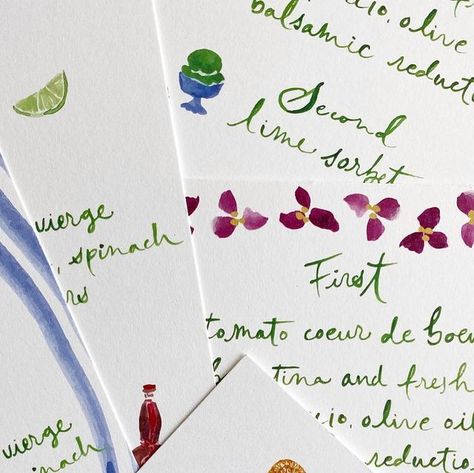 olive
balsamic reduction
Second
lime sorbet
vierge
, spinach
rs
First
tomato coeur de boeu
tina and fresh
cio, olive oil
reduction
vierge
spinach